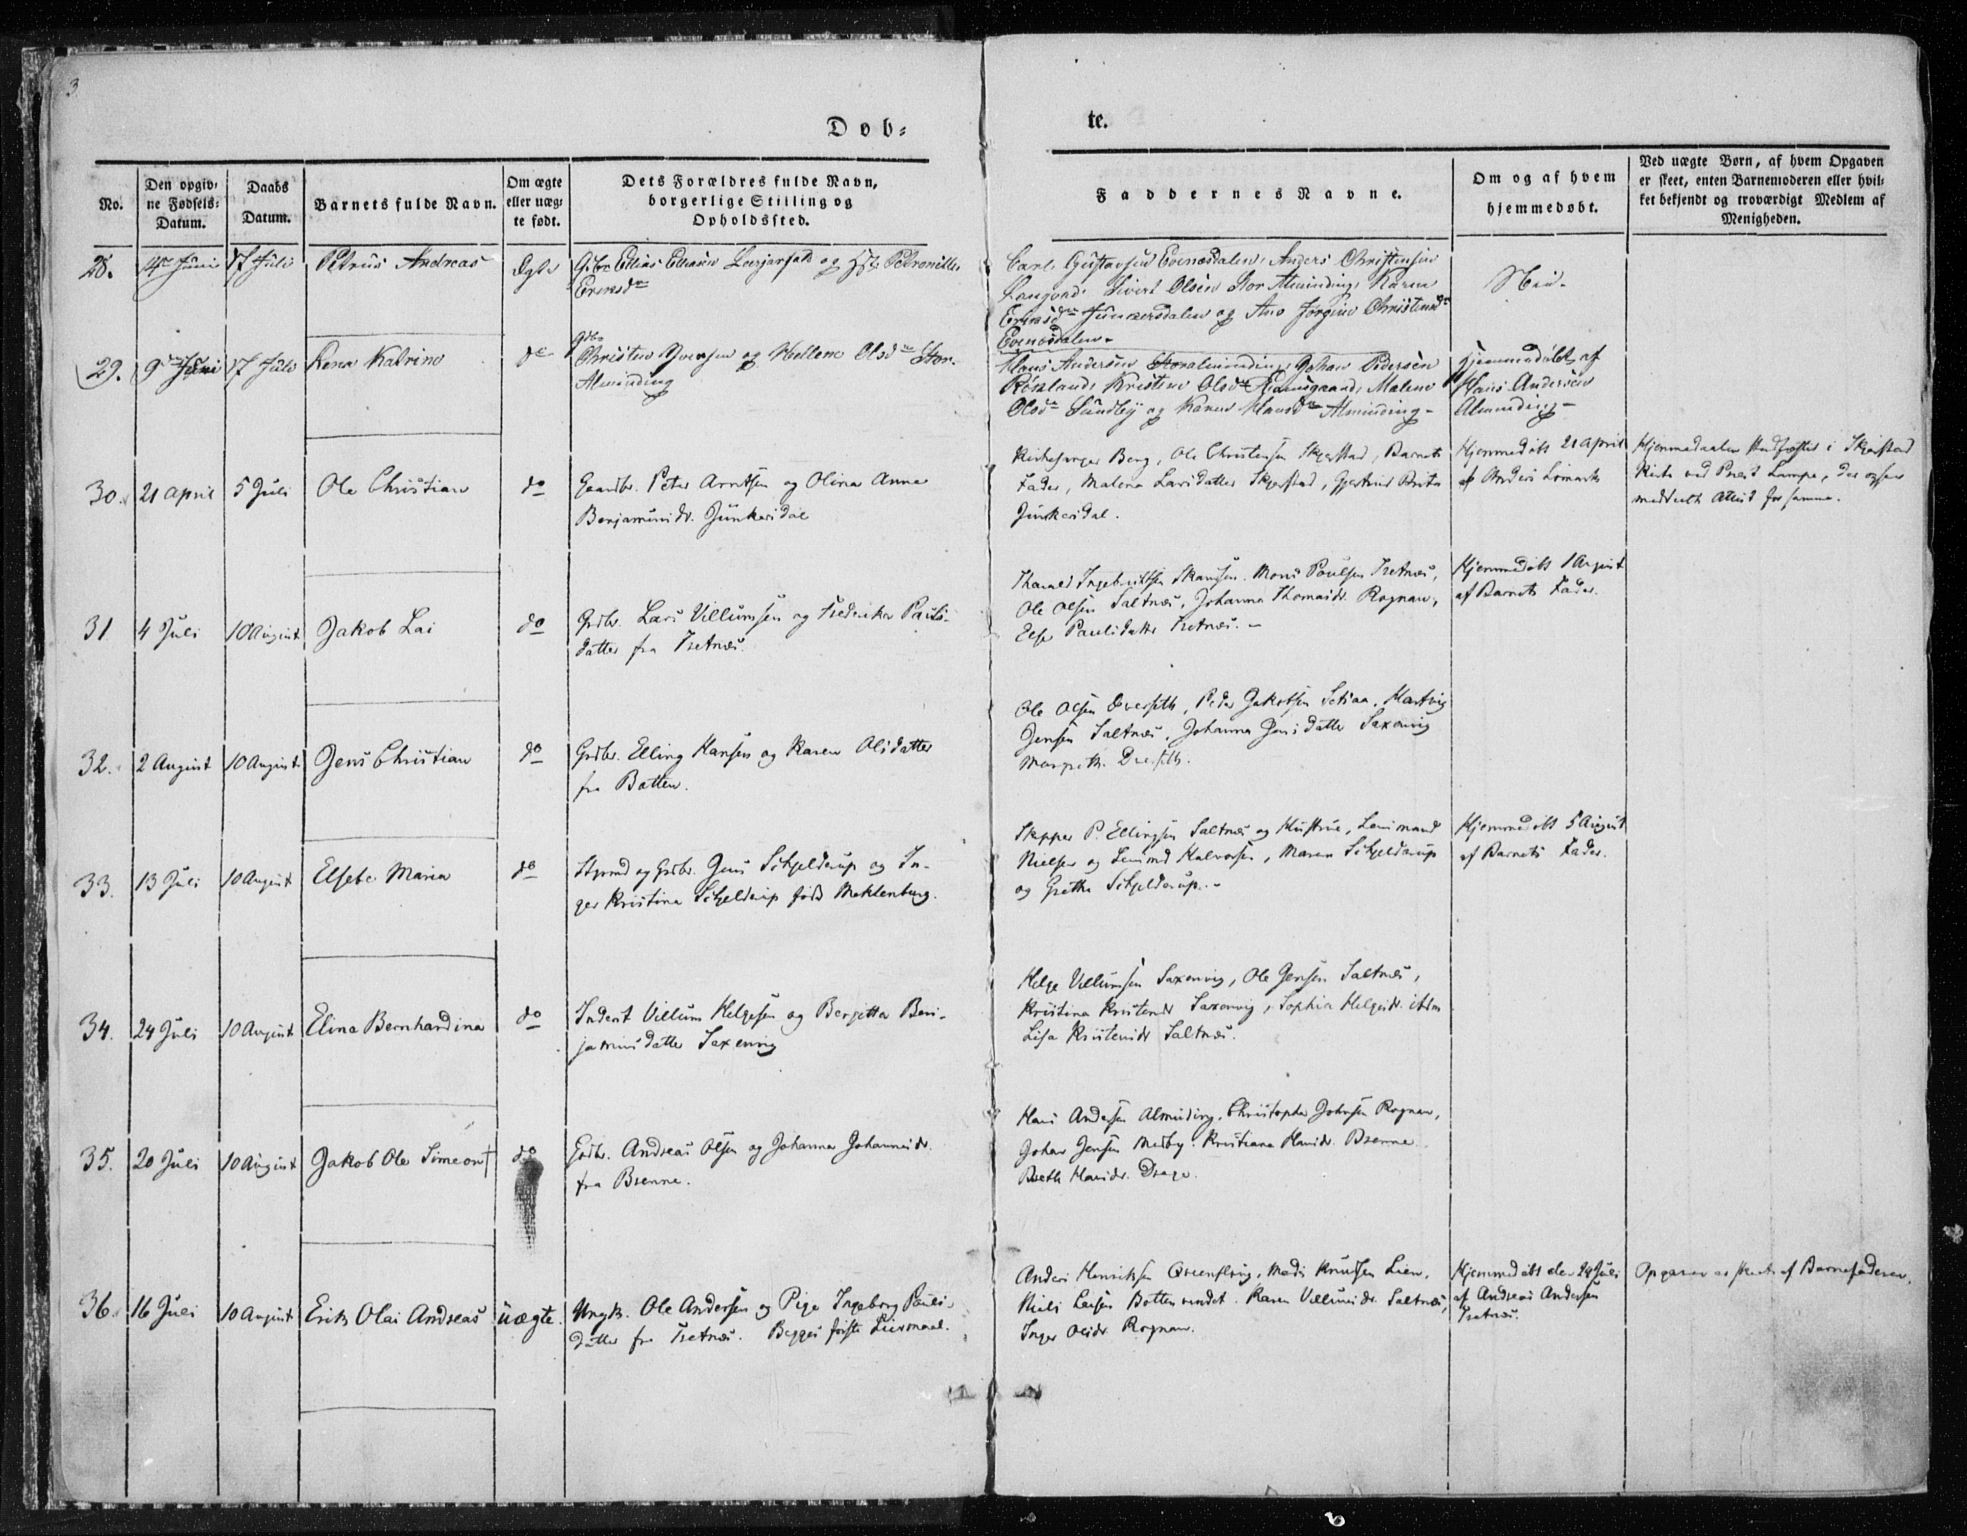 3
Døb-
te.
No.
Den opgiv-
ne Fødsels-
Datum.
Daabs
Datum.
Barnets fulde Navn.
Om ægte
eller uæg-
te født.
Dets Forældres fulde Navn,
borgerlige Stilling og
Opholdssted.
Faddernes Navne.
Om og af hvem
hjemmedøbt.
Ved uægte Børn, af hvem Opgaven
er skeet, enten Barnemoderen eller hvil-
ket bekjendt og troværdigt Medlem af
Menigheden.
28.
4de Juni
17 Juli
Petrus Andreas
Ægte
Gbr. Ellias Eliasen og Hst: Petronille
Ericsdr
Carl Gustavsen Evenesdalen, Anders Christensen
Sivert Olsen Stor Alminding, Karen
Ericsdr Junkersdalen og Ane Jørgine Christensdr
Evenesdalen.
Nei.
29.
9de Juni
17 Juli
Lena Katrine
do
Gbr.
Christen Iversen og Hellene Olsdr Stor
Alminding
Hans Andersen Storalminding, Johan Pedersen
Røsland, Kristine Olsdr Malene
Olsdr Sundby og Karen Hansdr Alminding
Hjemmedøbt af
Hans Andersen
Alminding
30.
21 April
5 Juli
Ole Christian
do
Gaardbr. Peter Arntsen og Olina Anna
Benjaminsdr. Junkersdal
Kirkesanger Berg, Ole Christensen Skjerstad, Barnets
Fader, Malena Larsdatter Skjerstad, Gjertrud Brita
Junkersdal.
Hjemmedøbt 21 April
af Anders Lomark
Hjemmedaaben stadfæstet i Skjerstad
Kirke ved Præst Lampe, der ogsaa
meddeelte Attest for samme.
31
4 Juli
10 August
Jakob Lai
do
Grdbr. Lars Villumsen og Frederika Pauls-
datter fra Tretnæs.
Ingebrigtsen Mons Paulsen Tretnæs,
Ole Olsen Saltnæs, Johanna Thomasdr. Rognan,
Else Paulsdatter Tretnæs.
Hjemmedøbt 1 August
af Barnets Fader.
32.
2 August
10 August
Jens Christian
do
Grdbr. Elling Hansen og Karen Olsdatter
fra Botten.
Ole Olsen Peder Jakobsen Setsaa, Hartvig
Jensen Saltnæs, Johanna Jensdatter Saxenvig
33.
13 Juli
10 August
Elsebe Maria
do
Styrmd og Grdbr. Jens Schjelderup og In-
ger Kristina Schjelderup født Meklenburg.
Skipper P. Ellingsen Saltnæs og Hustrue, Lensmand
Nielsen og Lensmd Halvorsen, Maren Schjelderup
og Grethe Schjelderup.
Hjemmedøbt 5 August
af Barnets Fader.
34.
24 Juli
10 August
Elina Bernhardina
do
Inderst Villum Helgesen og Bergitta Ben-
jaminsdatter Saxenvig
Helge Villumsen Saxenvig, Ole Jensen Saltnæs,
Kristina Kristensdr Saxenvig, Sophia Helgesdr. ibdm
Lisa Kristensdr Saltnæs.
35.
20 Juli
10 August
Jakob Ole Simeon †
do
Grdbr. Andreas Olsen og Johanna Johannesdr.
fra Brenne.
Hans Andersen Alminding, Christopher Johnsen Rognan,
Johan Jensen Medby, Kristiana Hansdr. Brenne
Hansdr. Drage.
36.
16 Juli
10 August
Erik Olai Andreas
uægte.
Ungk. Ole Andersen og Pige Ingeborg Pauls-
datter fra Tretnæs. Begges første Leiermaal.
Anders Henriksen Mads Knudsen Lien,
Niels Larsen Bottenvandet, Karen Villumsdr. Saltnæs,
Inger Olsdr. Rognan.
Hjemmedøbt den 24 Juli
af Andreas Andersen
Tretnæs.
Opgaven er skeet af Barnefaderen.